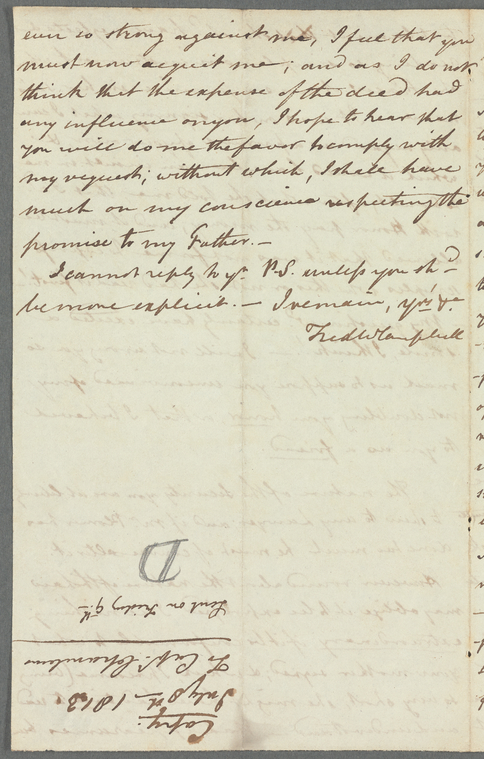 ever so strong against me, I feel that you
must now acquit me; and as I do not
think that the expense of the deed had
any influence on you, I hope to hear that
you will do me the favor to comply with
my request; without which, I shall have
much on my conscience respecting the
promise to my Father.—
I cannot reply to yr. P.S. unless you shd.
be more explicit. — I remain, yrs. &c
Fredk Wm Campbell
Copy.
July 8th 1813
To Capt. Chamberlain
Sent on Friday 9th
D